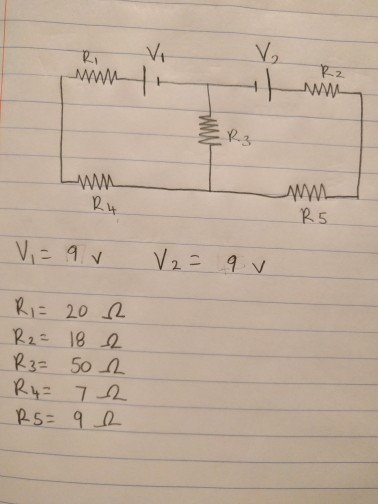 R1 V1 V2 R2
R3
R4 R5
V1 = 9 v V2 = 9 v
R1 = 20 Ω
R2 = 18 Ω
R3 = 50 Ω
R4 = 7 Ω
R5 = 9 Ω